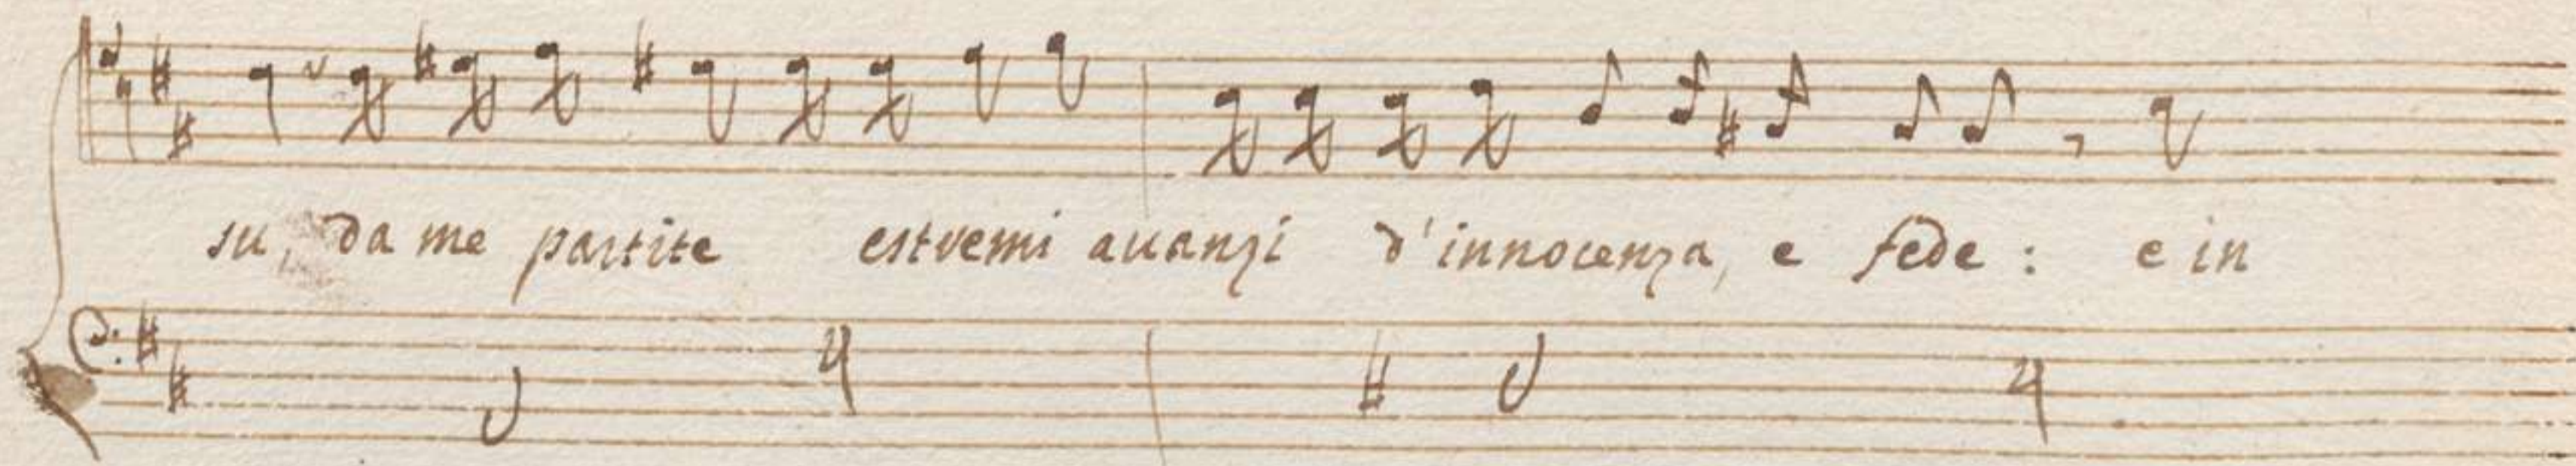 su, da me partite estremi auanzi d'innocenza, e fede: e in